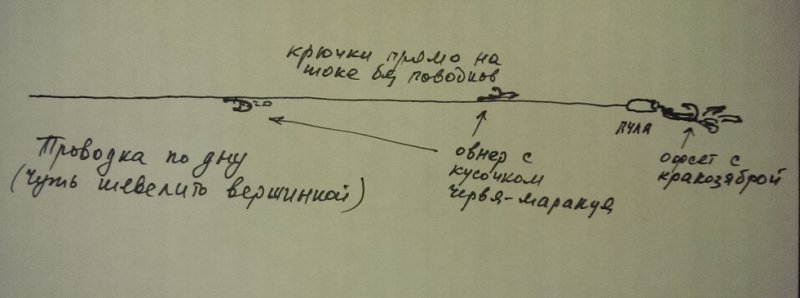 крючки прямо на
шоке без поводков
пуля
Проводка по дну
(чуть шевелить вершинкой)
овнер с
кусочком
червя-маракуя
офсет с
кракозяброй